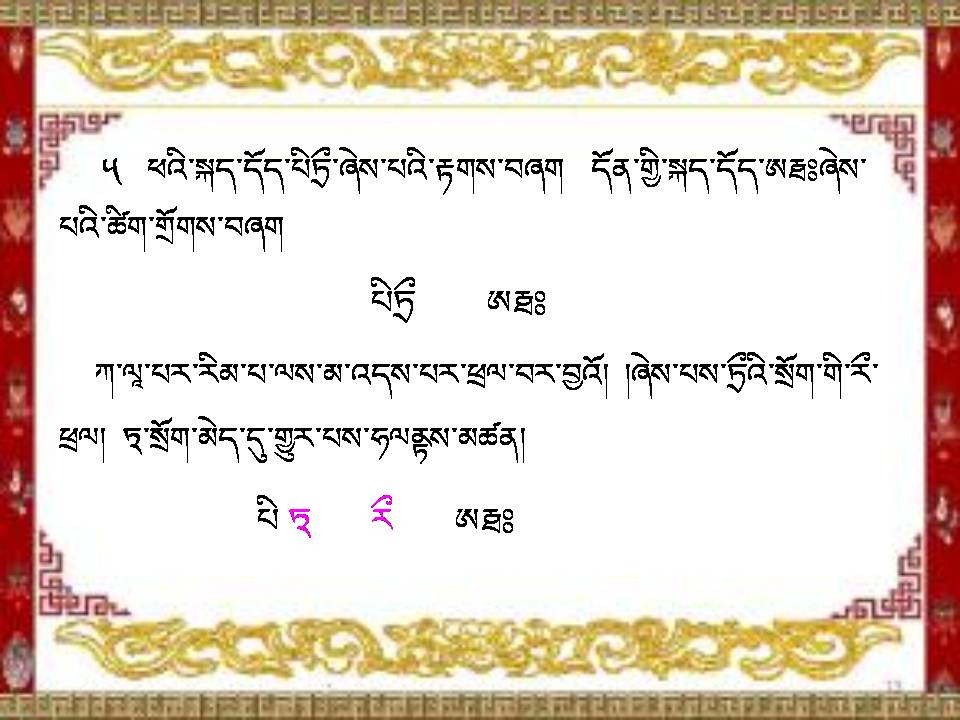 ༥ ཕའི་སྐད་དོད་པིཏྲྀ་ཞེས་པའི་རྟགས་བཞག དོན་གྱི་སྐད་དོད་ཨརྠཿཞེས་
པའི་ཚིག་གྲོགས་བཞག
པིཏྲྀ ཨརྠཿ
ཀ་ལཱ་པར་རིམ་པ་ལས་མ་འདས་པར་ཕྲལ་བར་བྱའོ། །ཞེས་པས་ཏྲྀའི་སྲོག་གི་རྀ་
ཕྲལ། ཏ྄་སྲོག་མེད་དུ་གྱུར་པས་ཧལནྟས་མཚན།
པི ཏ྄ རྀ ཨརྠཿ